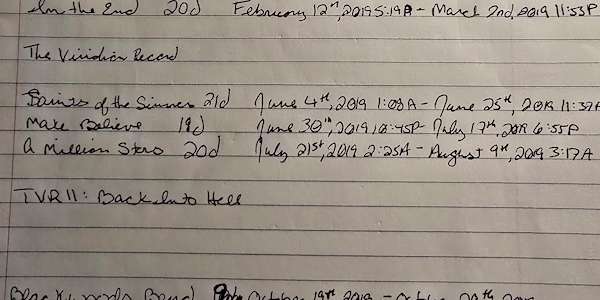 In the End 20d February 12th, 2019 5:19A - March 2nd, 2019 11:53P
The Viridian Record
Saints of the Sinners 21d June 4th, 2019 1:08A - June 25th, 2019 11:37A
Make Believe 19d June 30th, 2019 10:45P - July 17th, 2019 6:55P
A Million Stars 20d July 21st, 2019 2:25A - August 9th, 2019 3:17A
TVR II: Back Into Hell
October 19th 2019 -